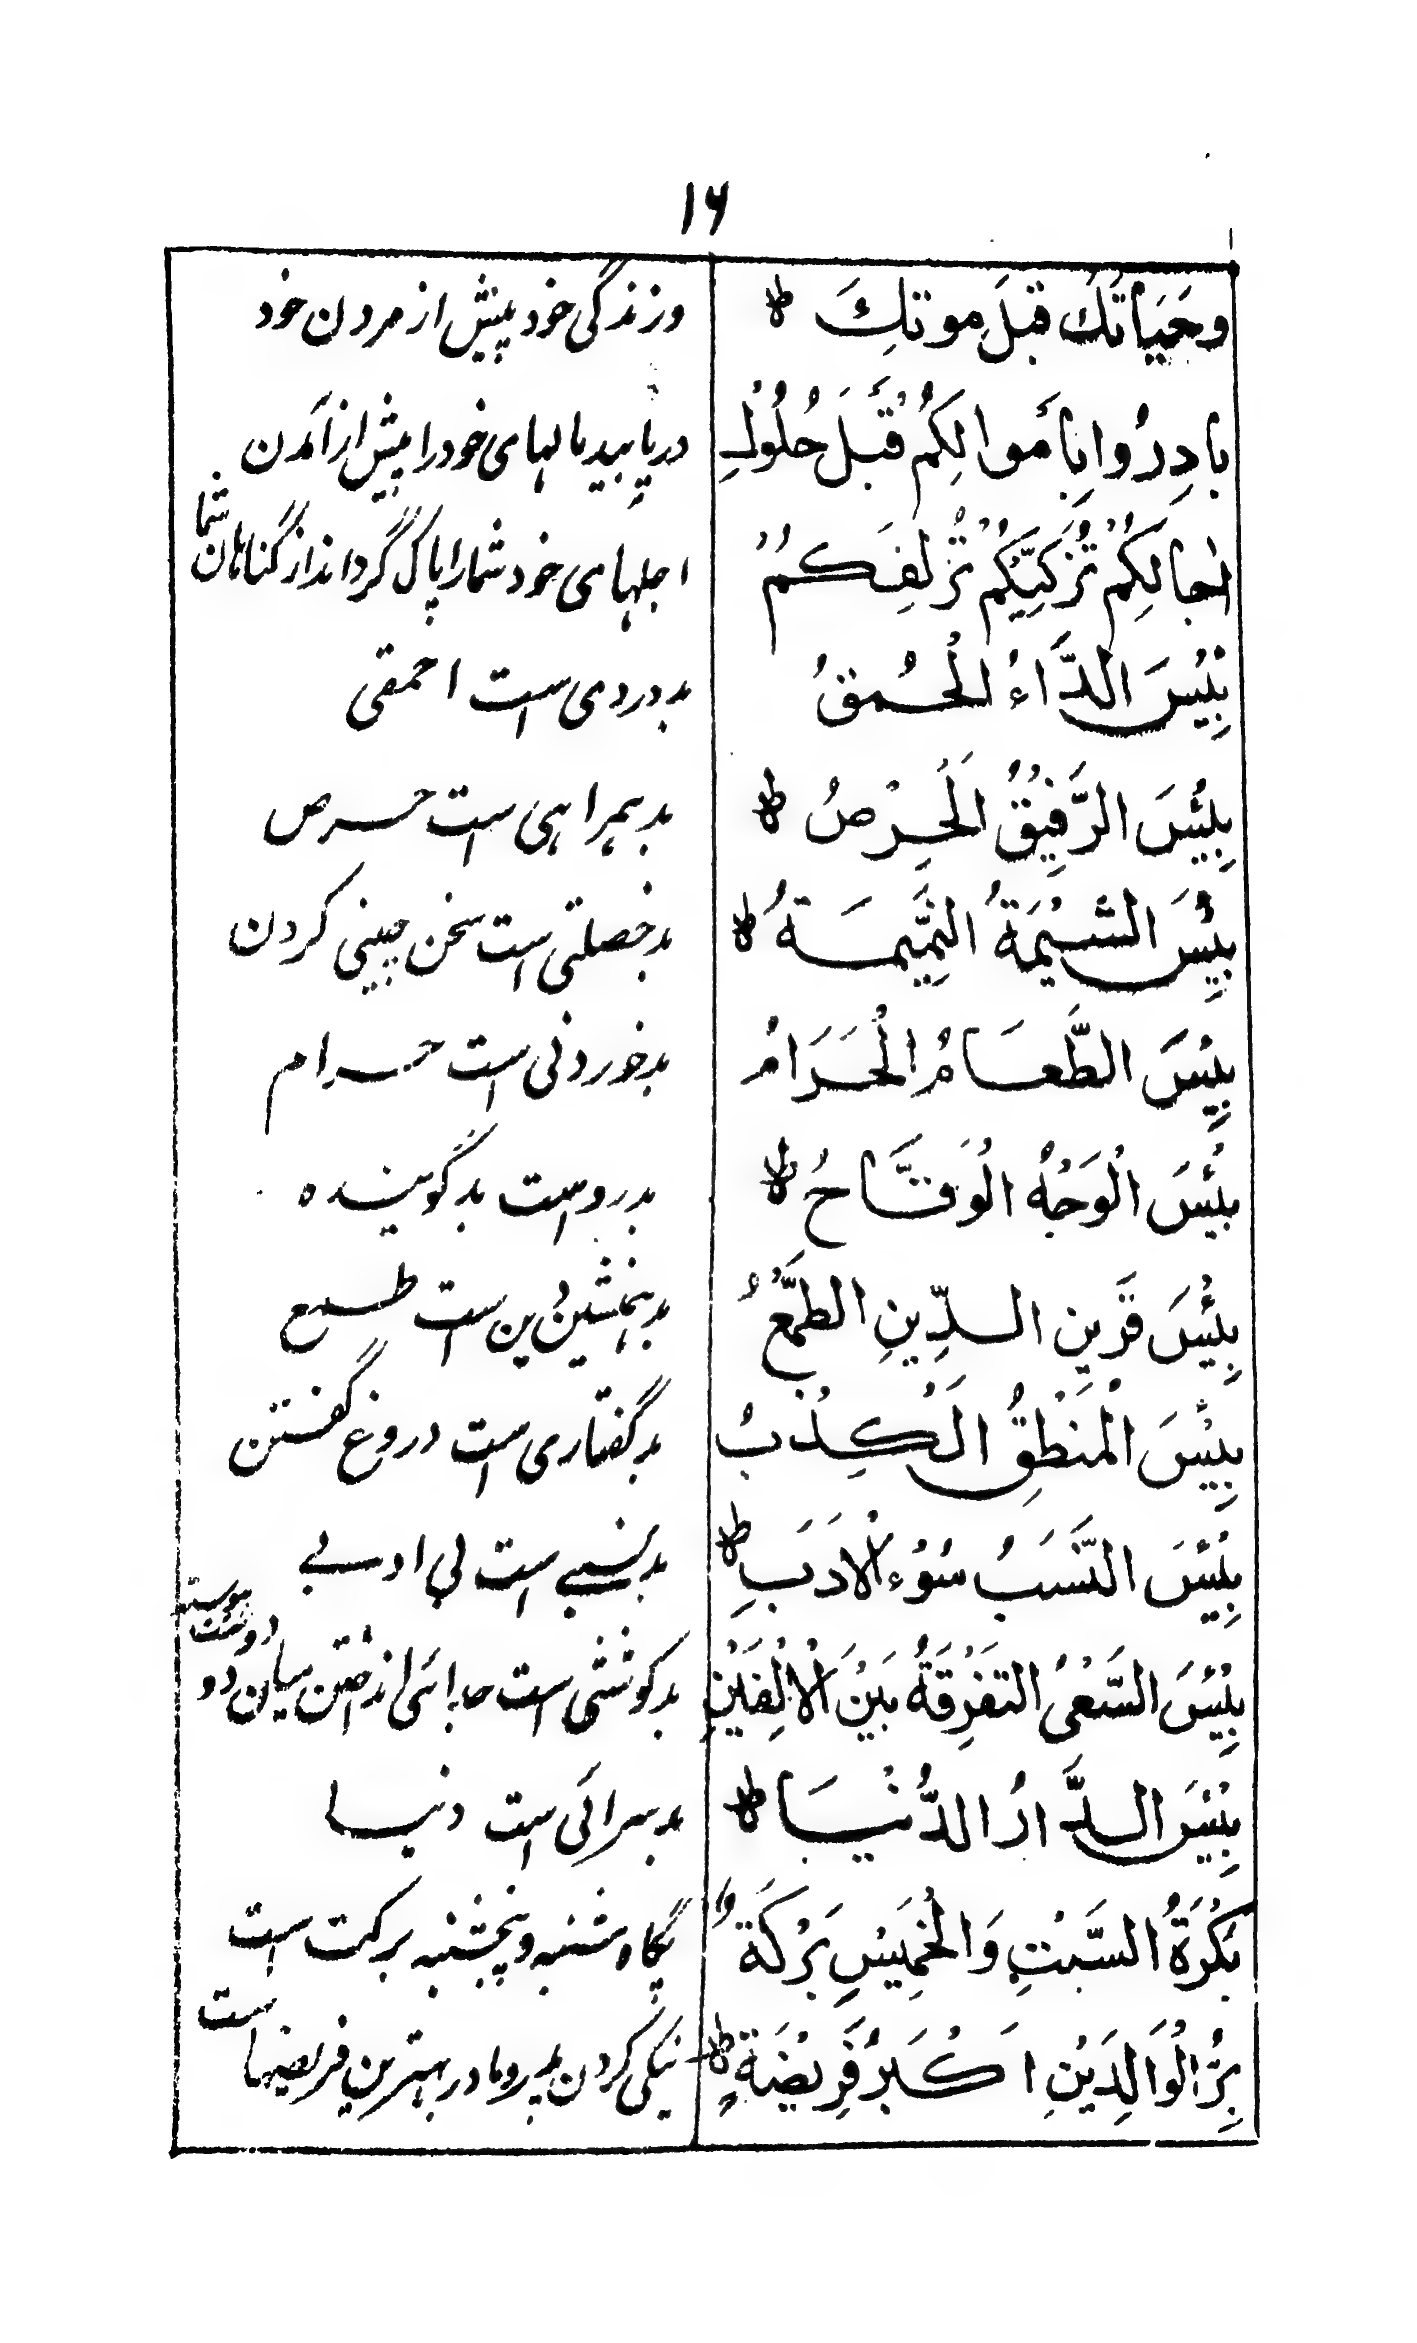 ۱۶
وحَيَاتَكَ قبلَ موتِكَ ط وزندگی خود پیش از مردن خود
بادِرُوا بِأَموالِكُمْ قَبْلَ حُلُولِ دریابید مالهای خود را پیش از آمدن
اٰجالِكُمْ تُزَكِّيكُمْ تُزْلِفَكُمْ اجلهای خود شما را پاک گرداند از گناهان شما
بِئْسَ الدَّاءُ الْحُمقُ بد دردی است احمقی
بِئْسَ الرَّفِيْقُ الْحِرْصُ ط بد همراهی است حرص
بِئْسَ الشِّيْمَةُ النَّمِيمَةُ ط بد خصلتی است سخن چینی کردن
بِئْسَ الطَّعَامُ الْحَرَامُ بد خوردنی است حرام
بِئْسَ الْوَجْهُ الْوَقَّاحُ ط بد رو است بد گوینده
بِئْسَ قَرِينِ الدِّينِ الطَّمَعُ بد همنشین دین است طمع
بِئْسَ الْمَنْطِقُ الْكِذْبُ بد گفتاری است دروغ گفتن
بِئْسَ النَّسَبُ سُوْءُ الْاَدَبِ ط بد نسبی است بی ادبی
بِئْسَ السَّعْىُ التَفَرِقَةُ بَيْنَ الْاَلِفَيْنِ بد کوششی است جدائی انداختن میان دو دوست
بِئْسَ الدَّارُ الدُّنْيَا ط بد سرائی است دنیا
بُكْرَةُ السَّبْتِ وَالْخَمِيْسِ بَرْكَةٌ پگاه شنبه و پنجشنبه برکت است
بِرُّ الْوَالِدَيْنِ اَكْبَرُ فَرِيضَةٍ ط نیکی کردن بپدر و مادر بهترین فریضها است